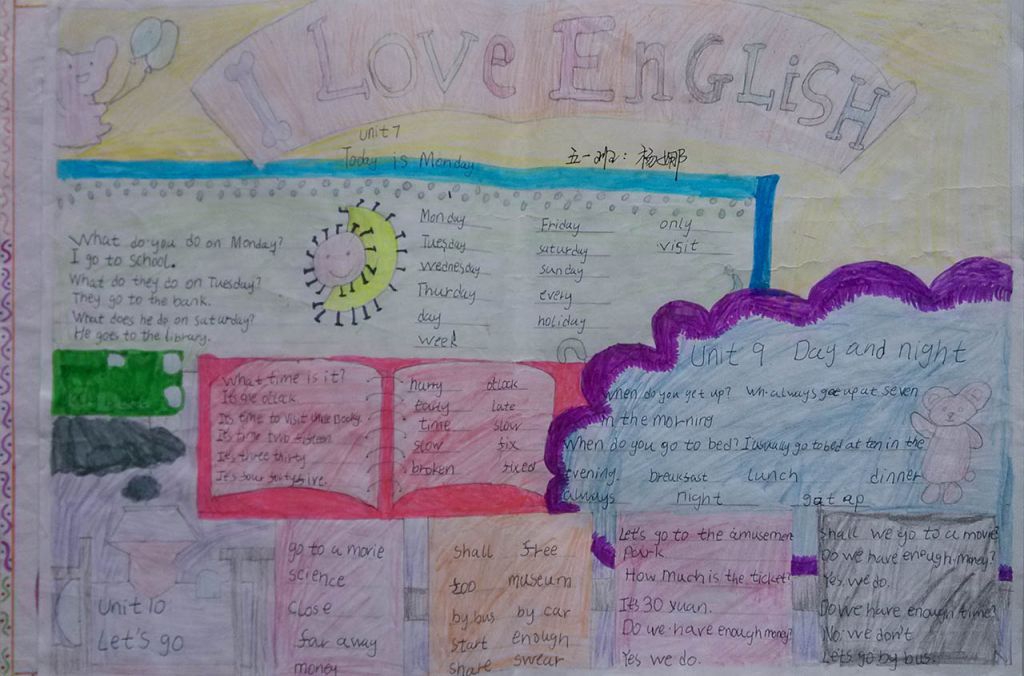 I Love EnGLiSH
Unit 7
Today is Monday
五一班: 杨娜
What do you do on Monday?
I go to school.
What do they do on Tuesday?
They go to the bank.
What does he do on saturday?
He goes to the library.
Monday Friday only
Tuesday saturday visit
Wednesday sunday
Thurday every
day holiday
week
What time is it?
It's time to visit
It's three thirty
hurry
late
time slow
slow six
broken
Unit 9 Day and night
When do you get up? always get up at seven
in the morning
When do you go to bed? I usually go to bed at ten in the
evening. breakfast lunch dinner
always night get up
Unit 10
Let's go
go to a movie
science
close
far away
money
shall free
museum
by bus by car
start enough
share swear
Let's go to the amusement
park
How much is the ticket?
It's 30 yuan.
Do we have enough money?
Yes we do.
Shall we go to a movie
Do we have enough money?
Yes. we do.
Do we have enough time?
No. we don't
Let's go by bus.